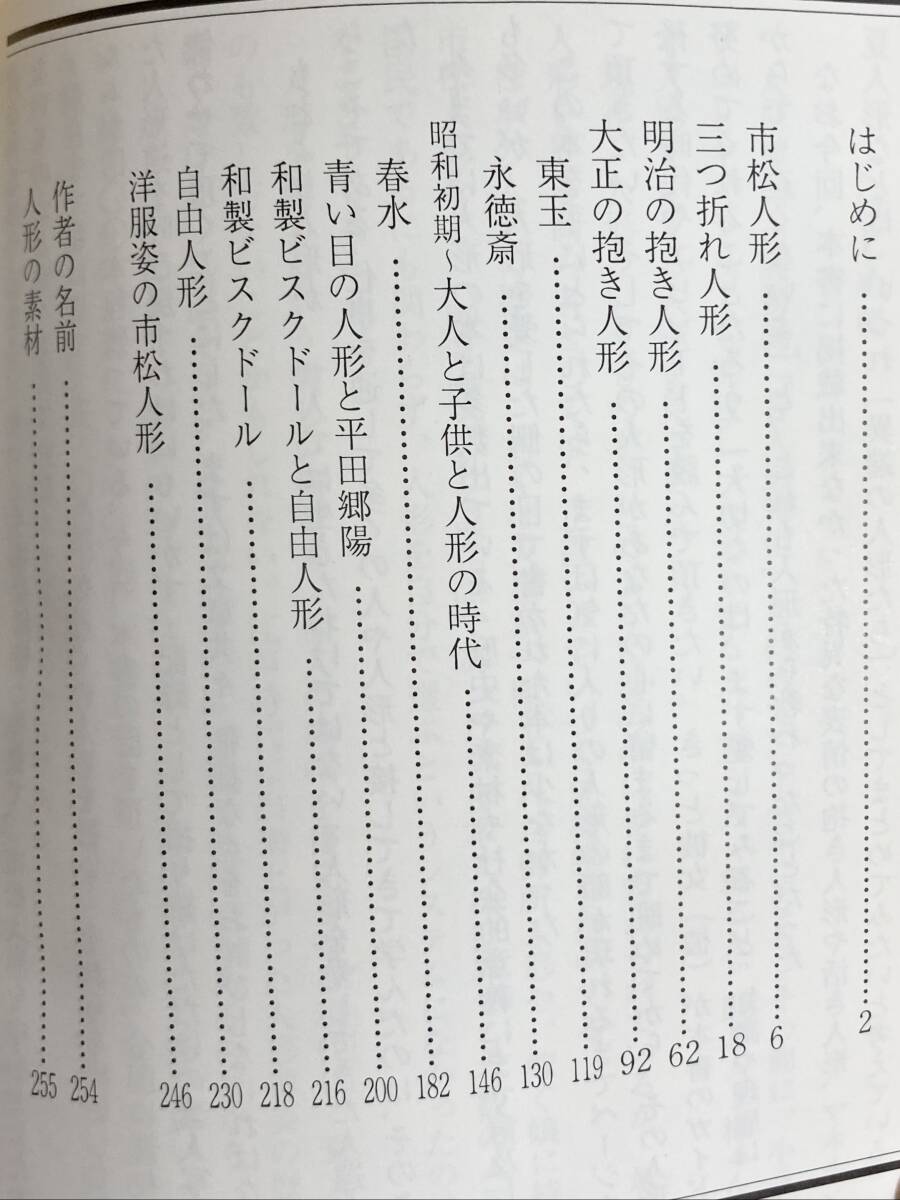 はじめに……2
市松人形……6
三つ折れ人形……18
明治の抱き人形……62
大正の抱き人形……92
東玉……119
永徳斎……130
昭和初期~大人と子供と人形の時代……146
春水……182
青い目の人形と平田郷陽……200
和製ビスクドールと自由人形……216
和製ビスクドール……218
自由人形……230
洋服姿の市松人形……246
作者の名前……254
人形の素材……255